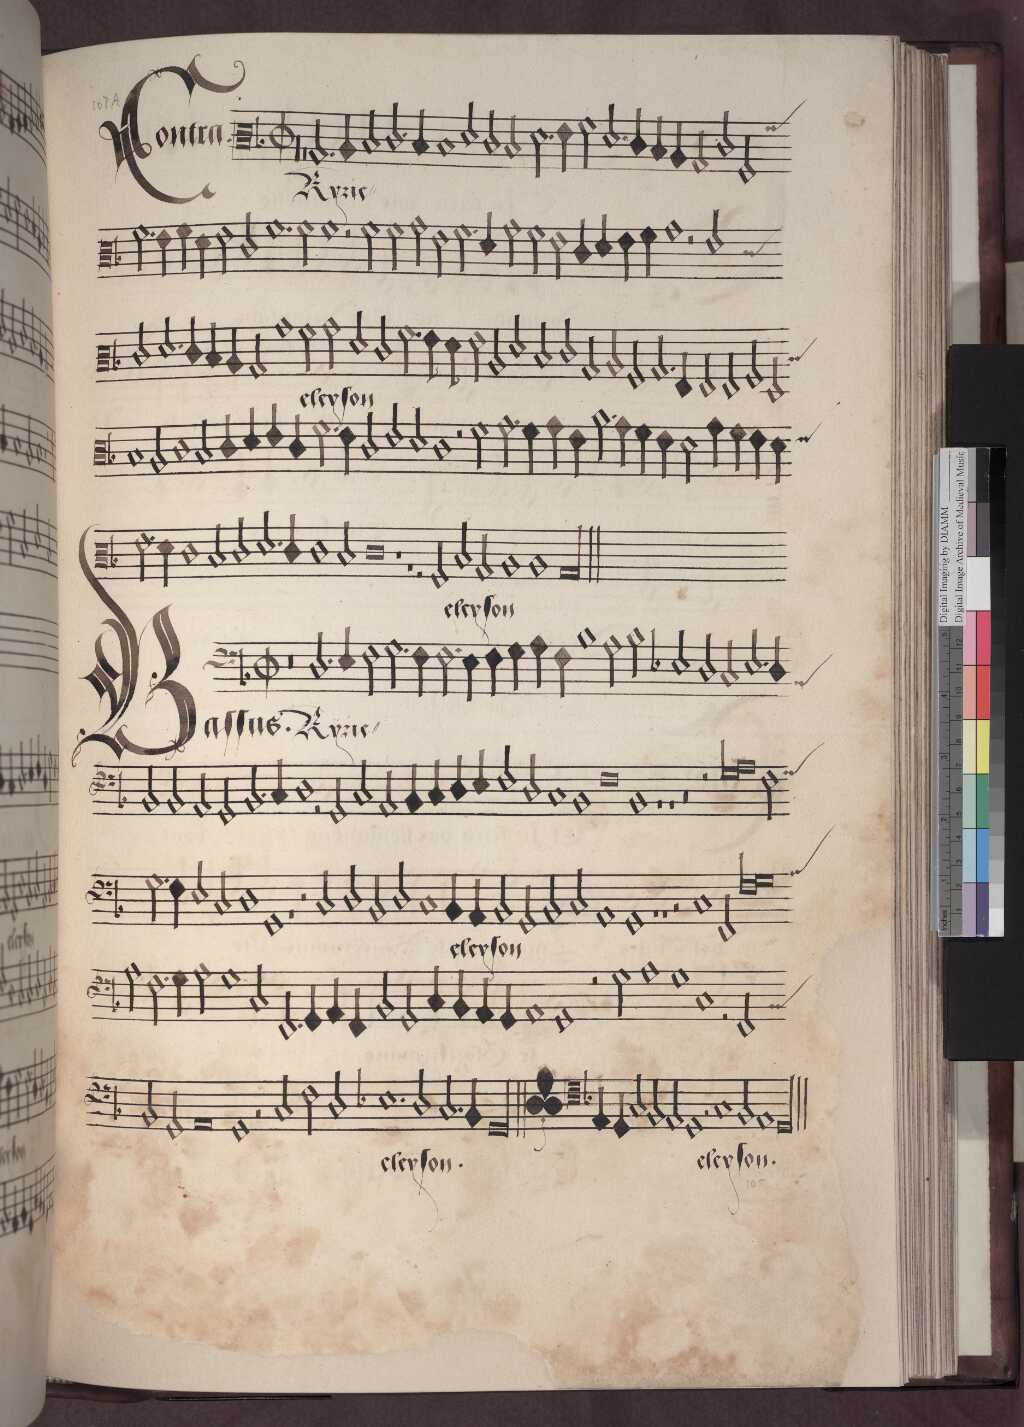 Contra.
Kyrie
eleyson
eleyson
Bassus. Kyrie
eleyson
eleyson.
eleyson.
Digital Imaging by DIAMM
Digital Image Archive of Medieval Music